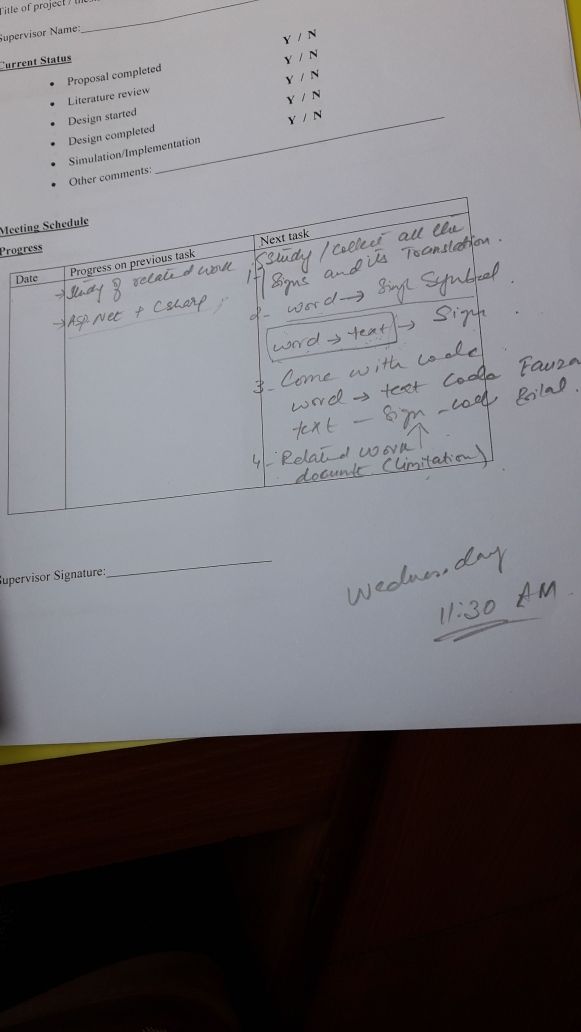 Title of project /
Supervisor Name:
Current Status
• Proposal completed Y / N
• Literature review Y / N
• Design started Y / N
• Design completed Y / N
• Simulation/Implementation Y / N
• Other comments:
Meeting Schedule
Progress
Date
Progress on previous task
Next task
→ Study of related work
→ Asp.Net + Csharp
1- Study / Collect all the
Signs and its Translation.
2- word → Symbol
word → text → Sign
3- Come with code
word → text Code
text - Sign - code Bilal.
4- Related work
(limitation)
Supervisor Signature:
Wednesday
11:30 AM